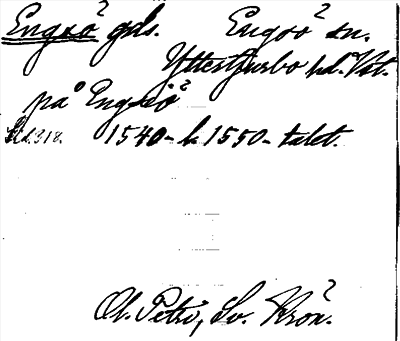 Engsö² gds. Engsö² sn.
Yttertjurbo hd. Vst.
på Engsiö²
Sid. 318. 1540- k 1550-talet.
Ol. Petri, Sv. Krön.²